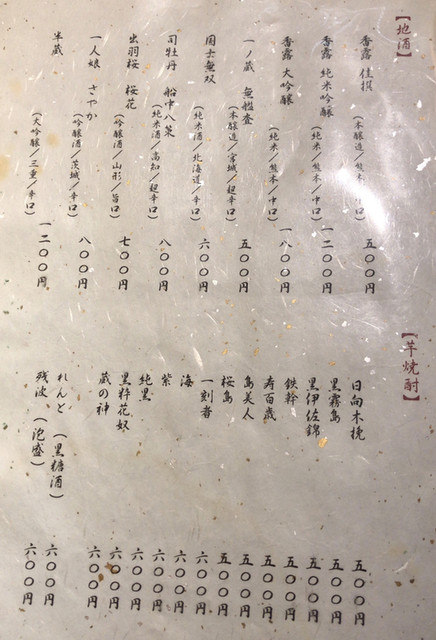 【地酒】
香露 佳撰
(本醸造/熊本/中口)
五〇〇円
香露 純米吟醸
(純米/熊本/中口)
一二〇〇円
香露 大吟醸
(純米/熊本/中口)
一八〇〇円
一ノ蔵 無鑑査
(本醸造/宮城/超辛口)
五〇〇円
国士無双
(純米酒/北海道/辛口)
六〇〇円
司牡丹 船中八策
(純米酒/高知/超辛口)
八〇〇円
出羽桜 桜花
(吟醸酒/山形/旨口)
七〇〇円
一人娘 さやか
(吟醸酒/茨城/辛口)
八〇〇円
半蔵
(大吟醸/三重/辛口)
一二〇〇円
【芋焼酎】
日向木挽
五〇〇円
黒霧島
五〇〇円
黒伊佐錦
五〇〇円
鉄幹
五〇〇円
寿百歳
五〇〇円
島美人
五〇〇円
桜島
五〇〇円
一刻者
六〇〇円
海
六〇〇円
紫
六〇〇円
純黒
六〇〇円
黒粋花奴
六〇〇円
蔵の神
六〇〇円
れんと (黒糖酒)
六〇〇円
残波 (泡盛)
六〇〇円